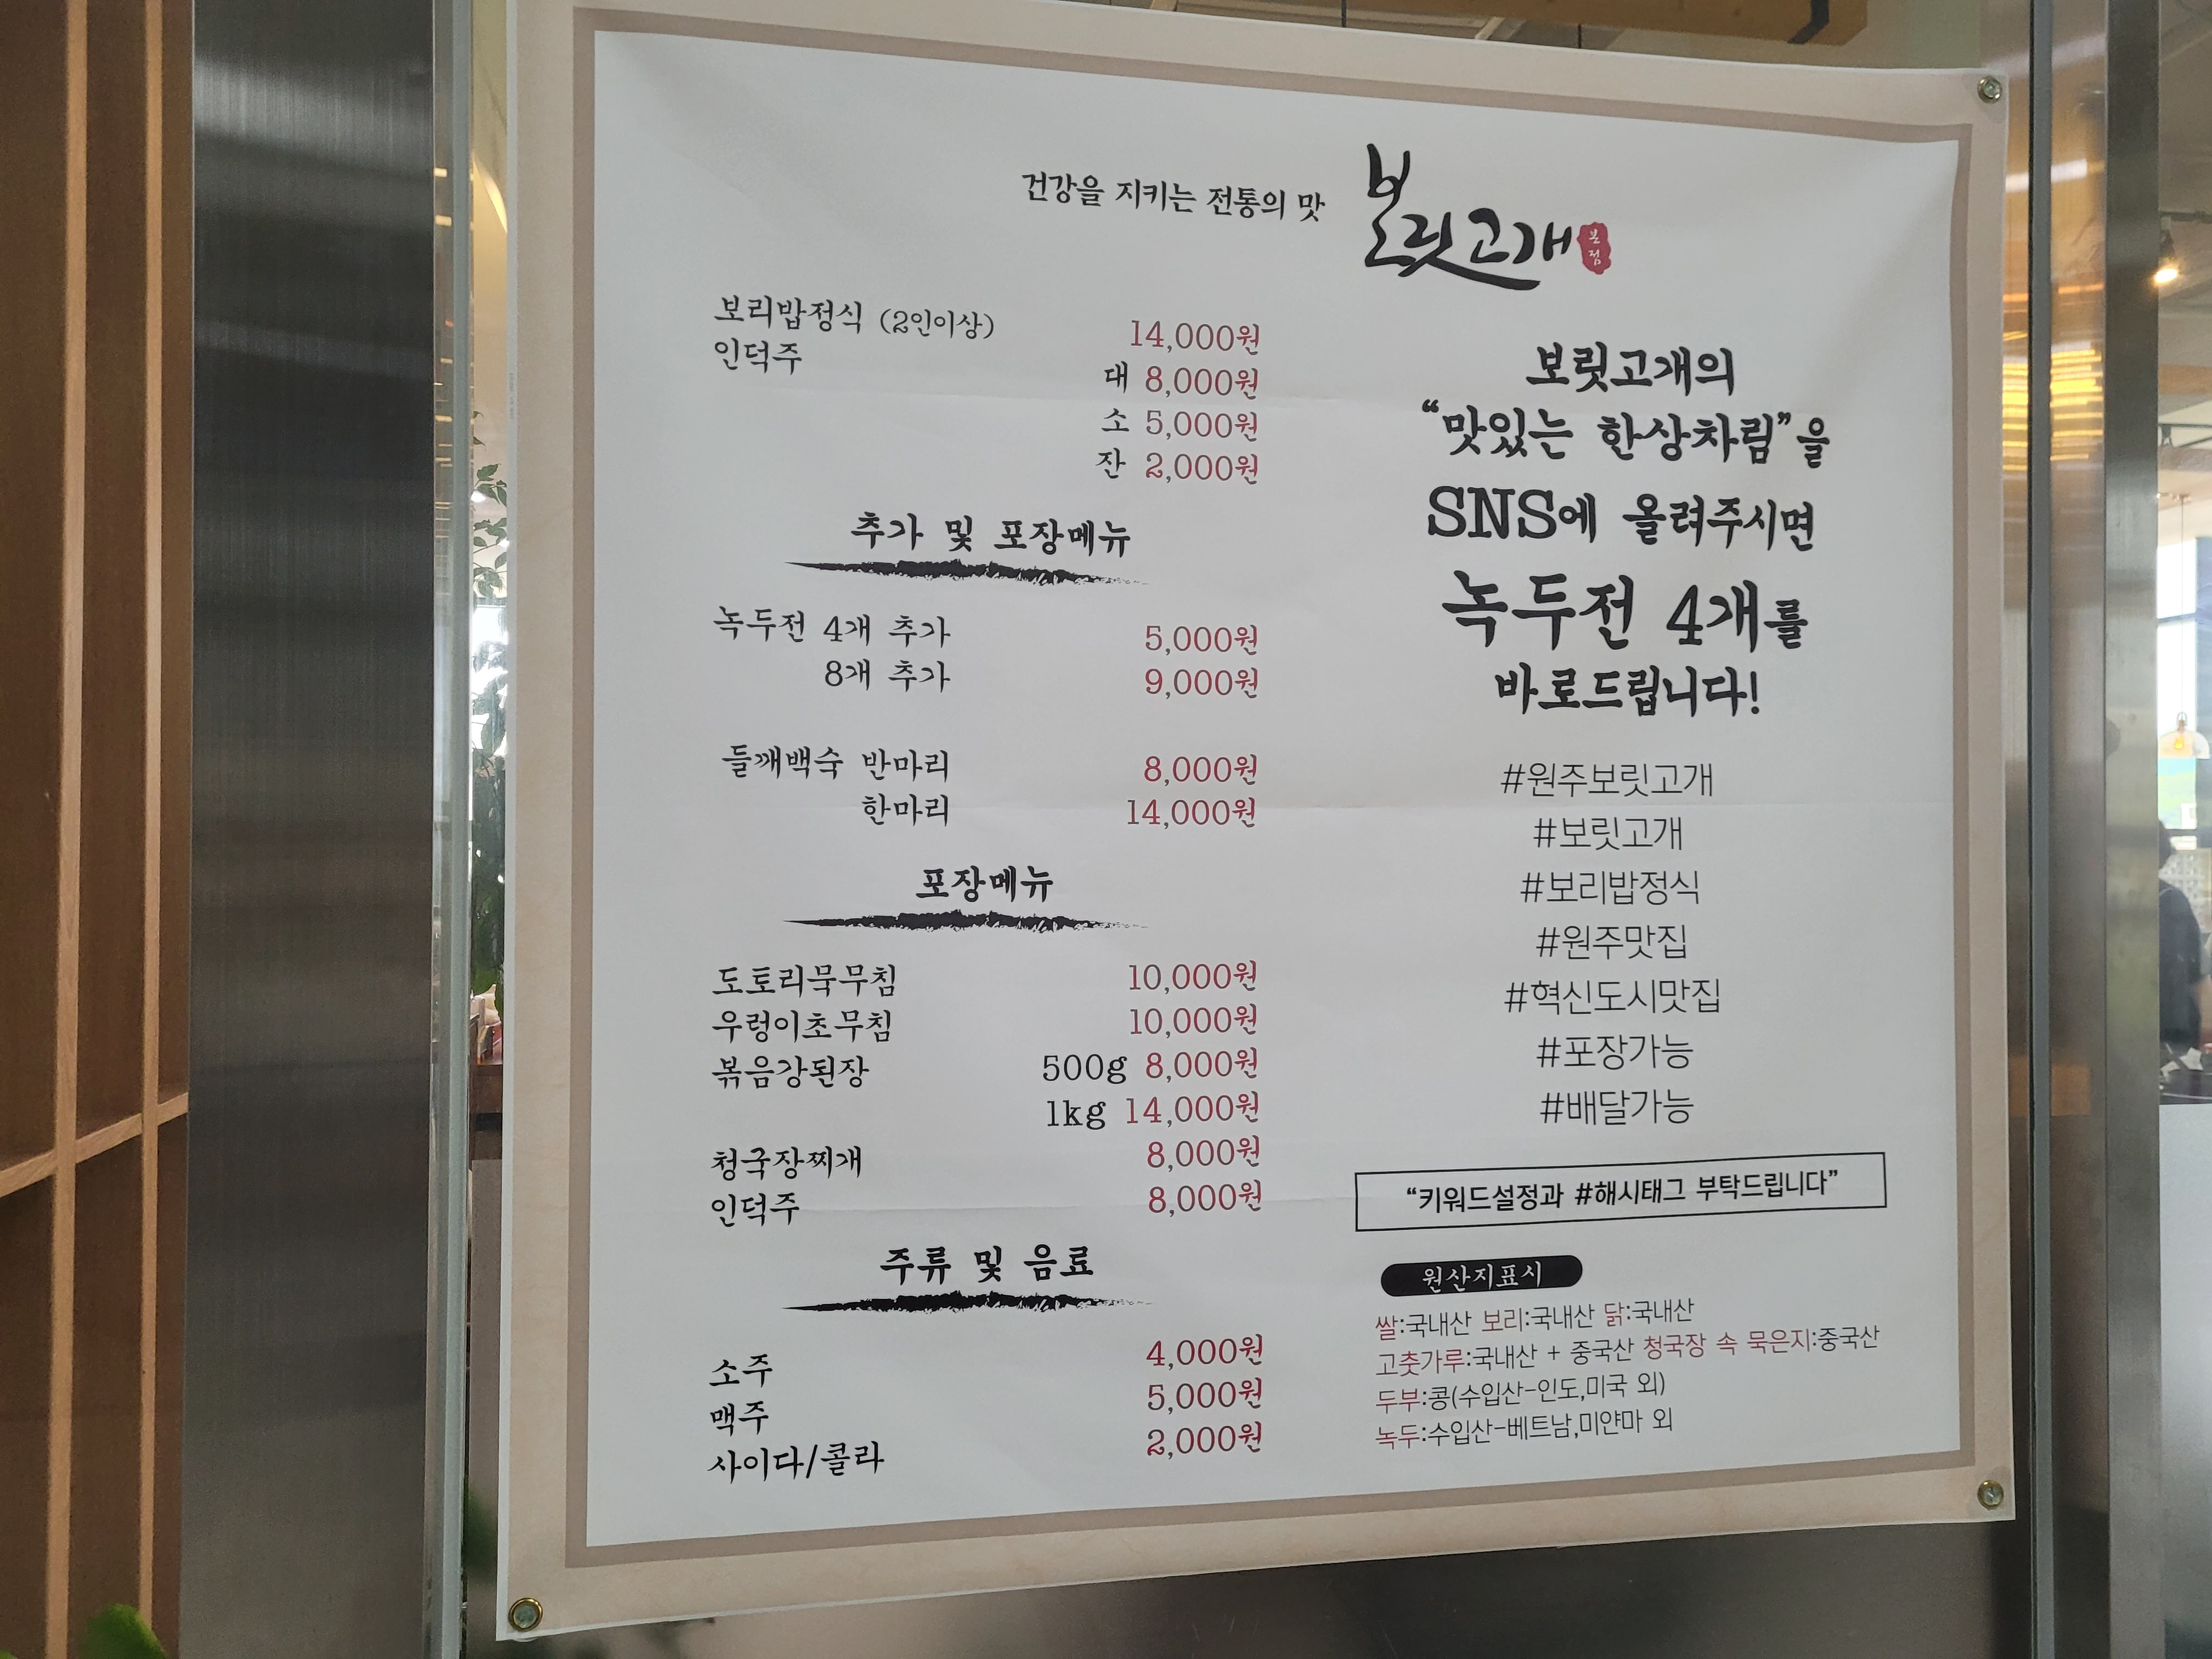 건강을 지키는 전통의 맛 보릿고개 본점
보리밥정식 (2인이상) 14,000원
인덕주 대 8,000원
소 5,000원
잔 2,000원
추가 및 포장메뉴
녹두전 4개 추가 5,000원
8개 추가 9,000원
들깨백숙 반마리 8,000원
한마리 14,000원
포장메뉴
도토리묵무침 10,000원
우렁이초무침 10,000원
볶음강된장 500g 8,000원
1kg 14,000원
청국장찌개 8,000원
인덕주 8,000원
주류 및 음료
소주 4,000원
맥주 5,000원
사이다/콜라 2,000원
보릿고개의
“맛있는 한상차림”을
SNS에 올려주시면
녹두전 4개를
바로드립니다!
#원주보릿고개
#보릿고개
#보리밥정식
#원주맛집
#혁신도시맛집
#포장가능
#배달가능
“키워드설정과 #해시태그 부탁드립니다”
원산지표시
쌀:국내산 보리:국내산 닭:국내산
고춧가루:국내산 + 중국산 청국장 속 묵은지:중국산
두부:콩(수입산-인도,미국 외)
녹두:수입산-베트남,미얀마 외